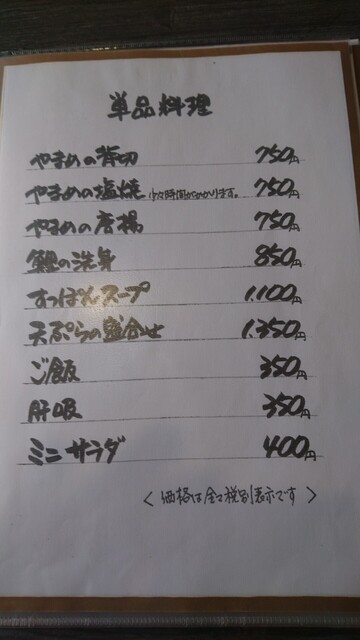 単品料理
やまめの背切 750円
やまめの塩焼 少々時間がかかります。 750円
やまめの唐揚 750円
鯉の洗身 850円
すっぽんスープ 1,100円
天ぷらの盛合せ 1,350円
ご飯 350円
肝吸 350円
ミニサラダ 400円
＜価格は全て税別表示です＞